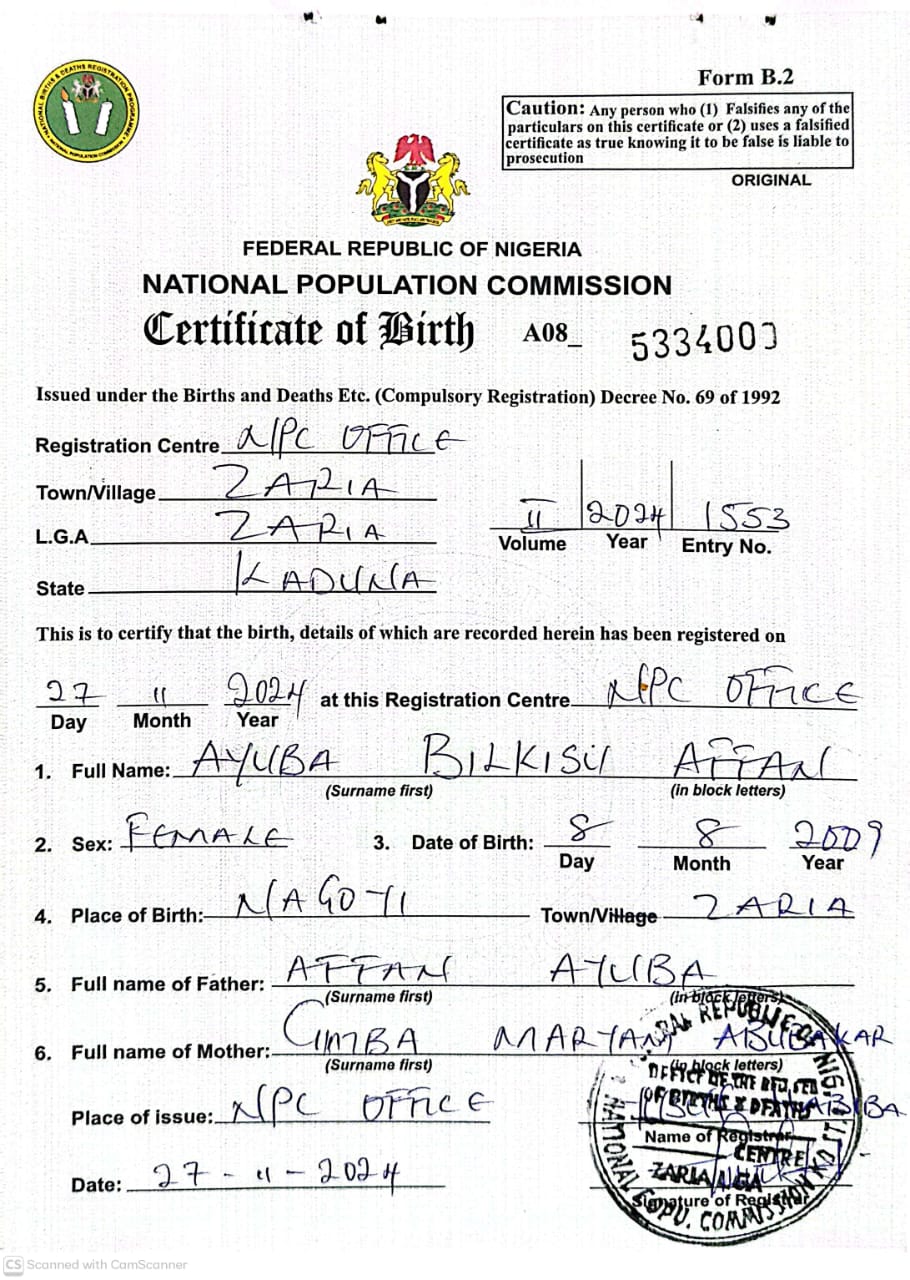 NATIONAL BIRTHS & DEATHS REGISTRATION PROGRAMME
NATIONAL POPULATION COMMISSION
Form B.2
Caution: Any person who (1) Falsifies any of the
particulars on this certificate or (2) uses a falsified
certificate as true knowing it to be false is liable to
prosecution
ORIGINAL
FEDERAL REPUBLIC OF NIGERIA
NATIONAL POPULATION COMMISSION
Certificate of Birth A08_ 5334000
Issued under the Births and Deaths Etc. (Compulsory Registration) Decree No. 69 of 1992
Registration Centre NPC OFFICE
Town/Village ZARIA
L.G.A ZARIA
II 2024 1553
Volume Year Entry No.
State KADUNA
This is to certify that the birth, details of which are recorded herein has been registered on
27 11 2024 at this Registration Centre NPC OFFICE
Day Month Year
1. Full Name: AYUBA BILKISU AFFAN
(Surname first) (in block letters)
2. Sex: FEMALE 3. Date of Birth: 8 8 2009
Day Month Year
4. Place of Birth: NAGOYI Town/Village ZARIA
5. Full name of Father: AFFAN AYUBA
(Surname first) (in block letters)
6. Full name of Mother: CIMBA MARYAM ABUBAKAR
(Surname first) (in block letters)
Place of issue: NPC OFFICE
Name of Registrar
Date: 27-11-2024
Signature of Registrar
CENTRE
ZARIA LGA
CS Scanned with CamScanner